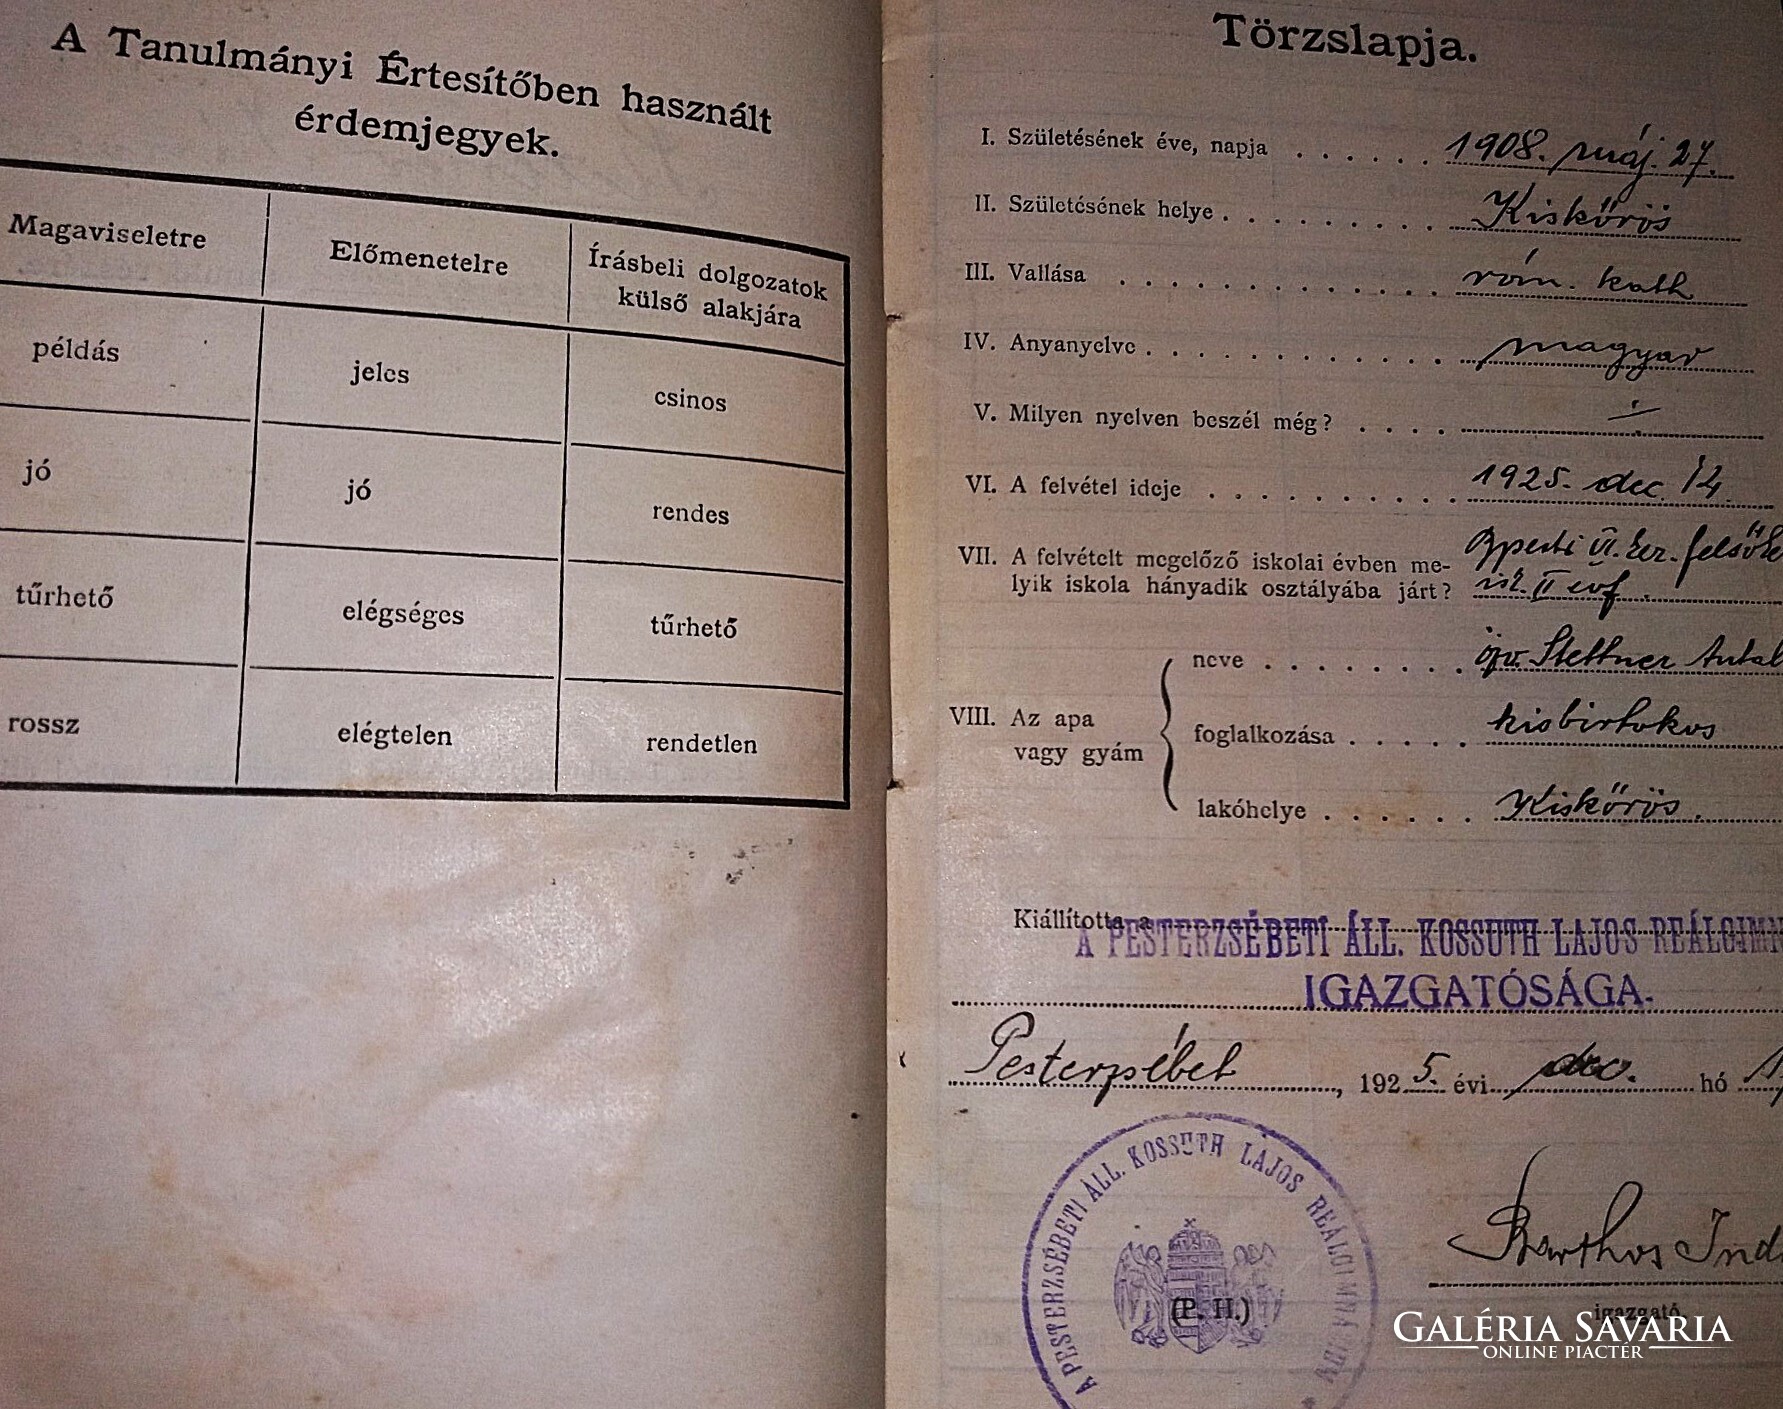 A Tanulmányi Értesítőben használt
érdemjegyek.
Magaviseletre Előmenetelre Írásbeli dolgozatok
külső alakjára
példás jeles csinos
jó jó rendes
tűrhető elégséges tűrhető
rossz elégtelen rendetlen
Törzslapja.
I. Születésének éve, napja . . . . . . 1908. máj. 27.
II. Születésének helye . . . . . . . . Kiskőrös
III. Vallása . . . . . . . . . . . . . róm. kath
IV. Anyanyelve . . . . . . . . . . . . magyar
V. Milyen nyelven beszél még? . . . .
VI. A felvétel ideje . . . . . . . . . . 1925. dec. 12.
VII. A felvételt megelőző iskolai évben me- Bpesti VI. ker. felsőke
lyik iskola hányadik osztályába járt? isk. II évf.
VIII. Az apa
vagy gyám
neve . . . . . . . özv. Stettner Antal
foglalkozása . . . . . kisbirtokos
lakóhelye . . . . . . Kiskőrös.
Kiállította a
A PESTERZSÉBETI ÁLL. KOSSUTH LAJOS REÁLGIMN
IGAZGATÓSÁGA.
Pesterzsébet, 1925. évi dec. hó
A PESTERZSÉBETI ÁLL. KOSSUTH LAJOS REÁLGIMNÁZIUM
(P. H.)
Barthos Ind
igazgató.
GALÉRIA SAVARIA
ONLINE PIACTÉR